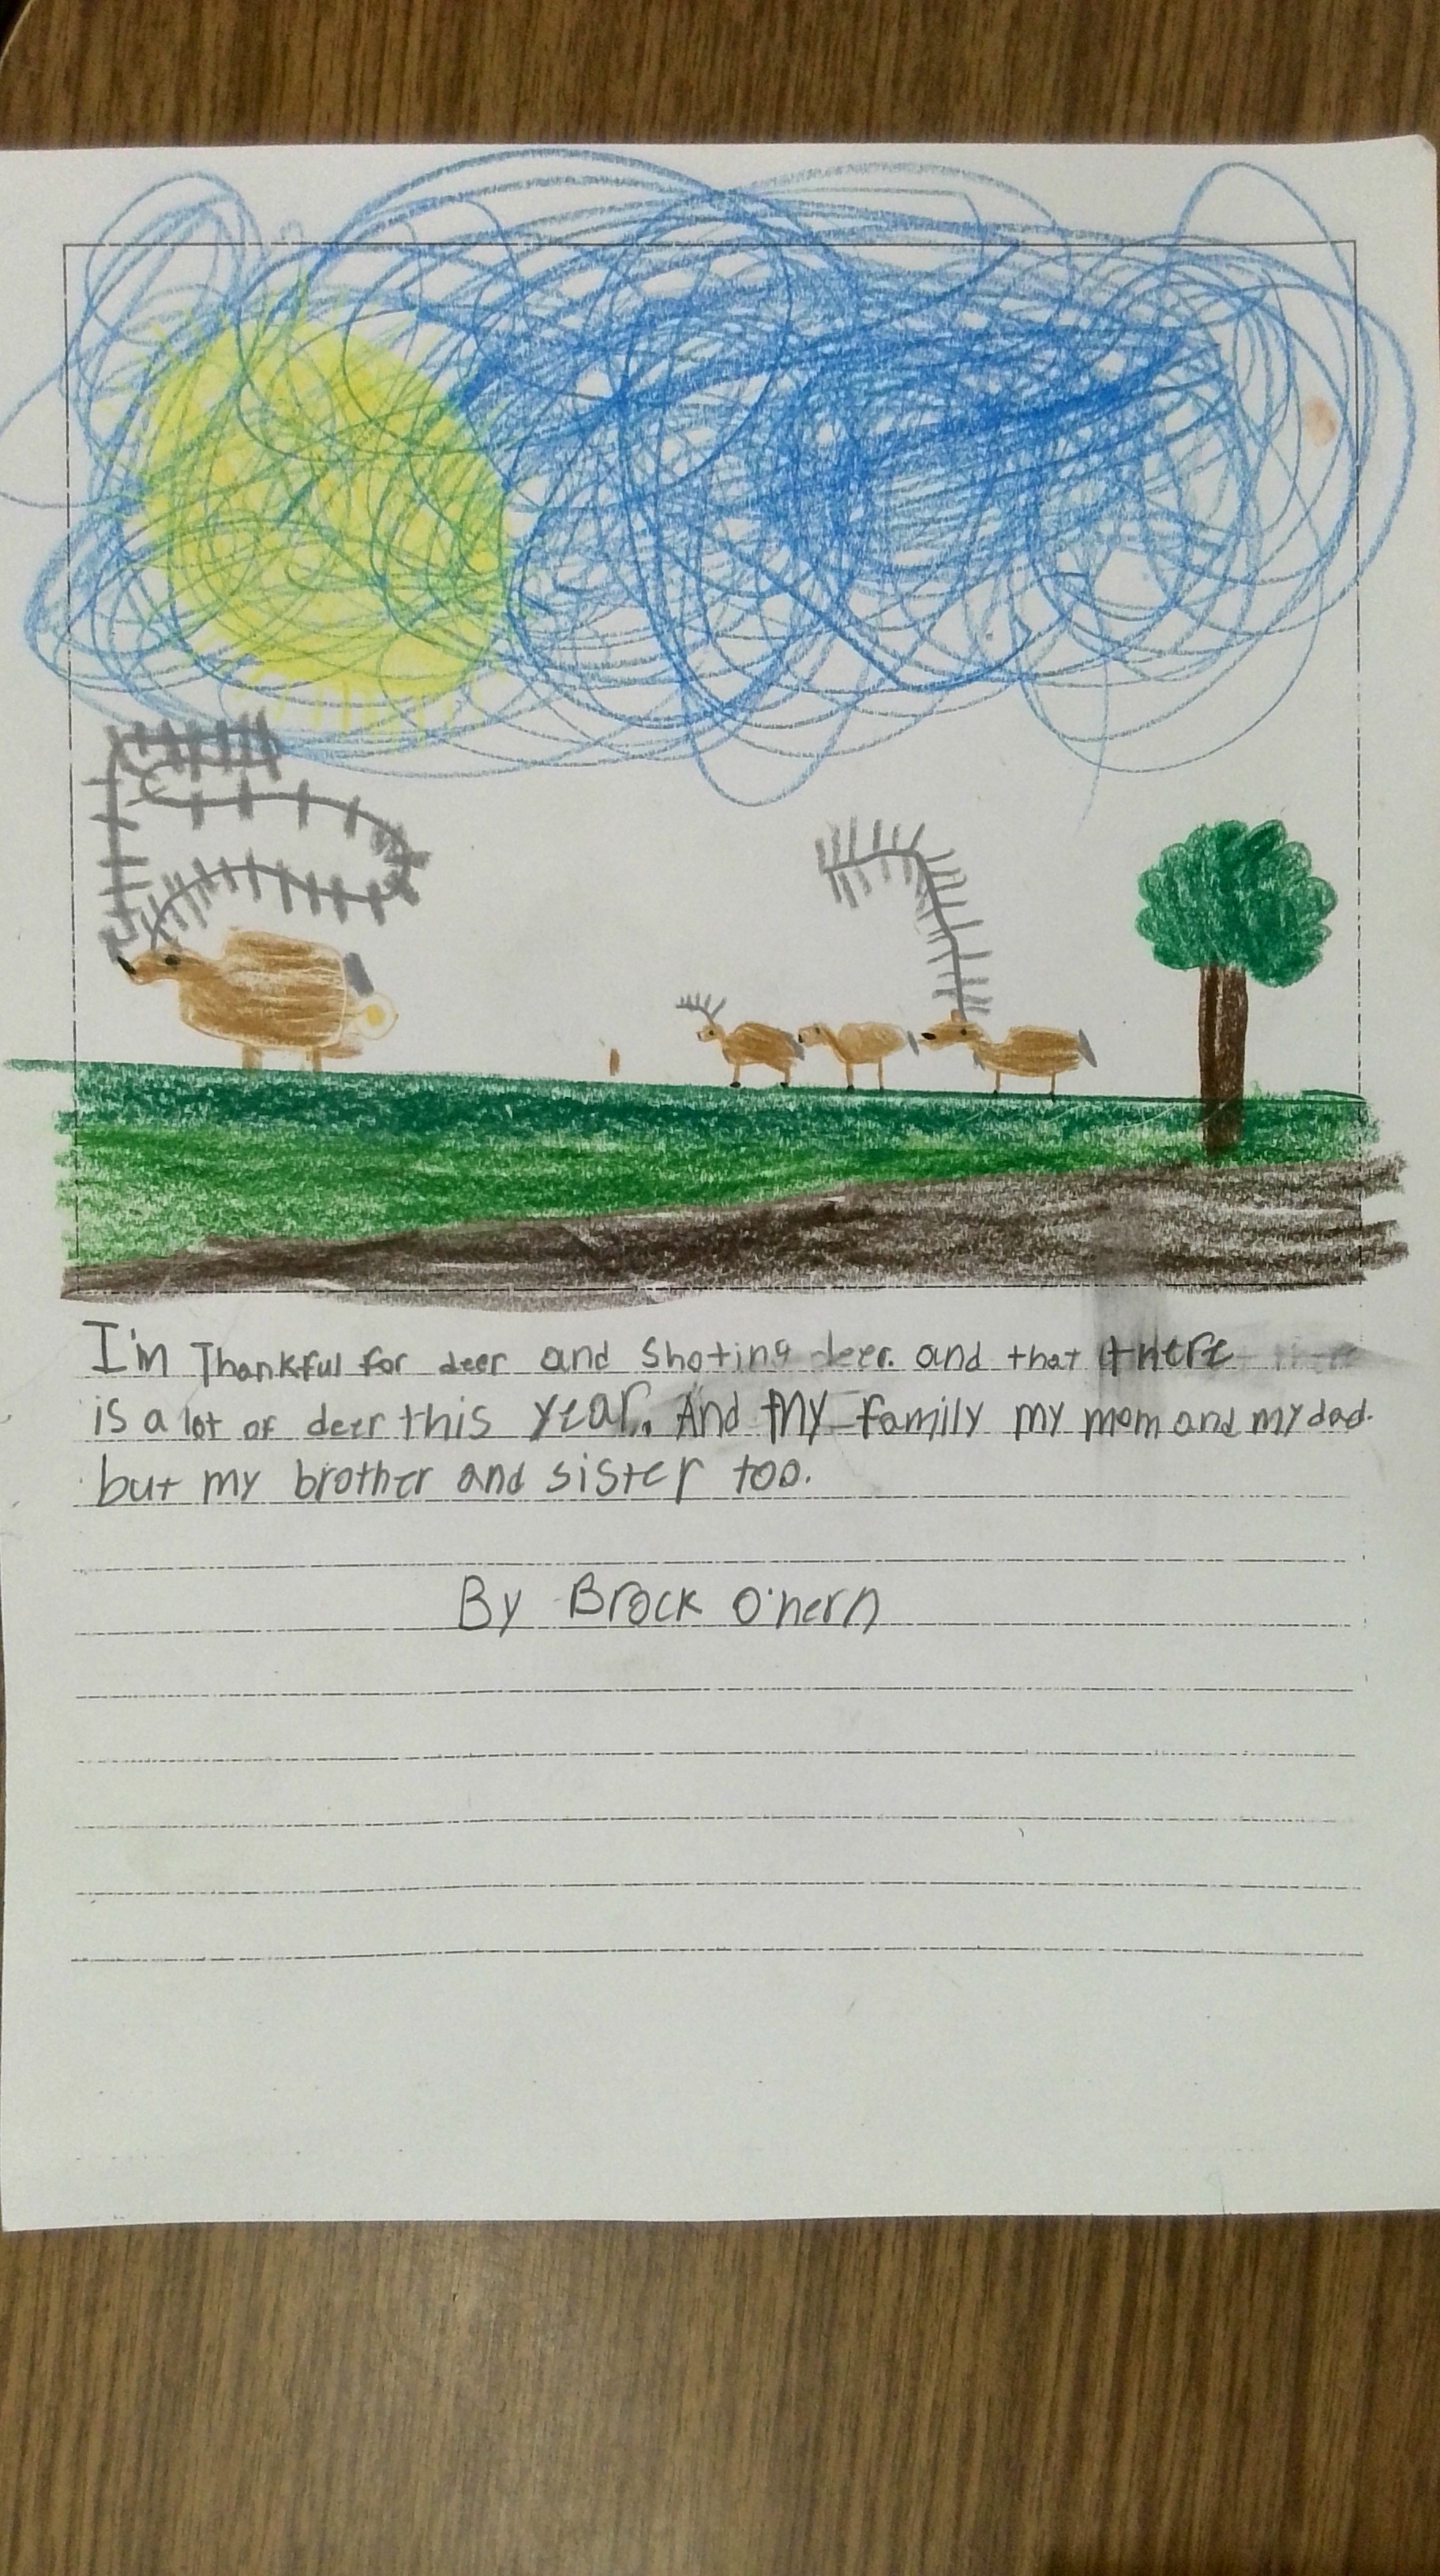 I'm Thankful for deer and Shoting deer. and that there
is a lot of deer this year. And my family my mom and my dad.
but my brother and sister too.
By Brock O'hern